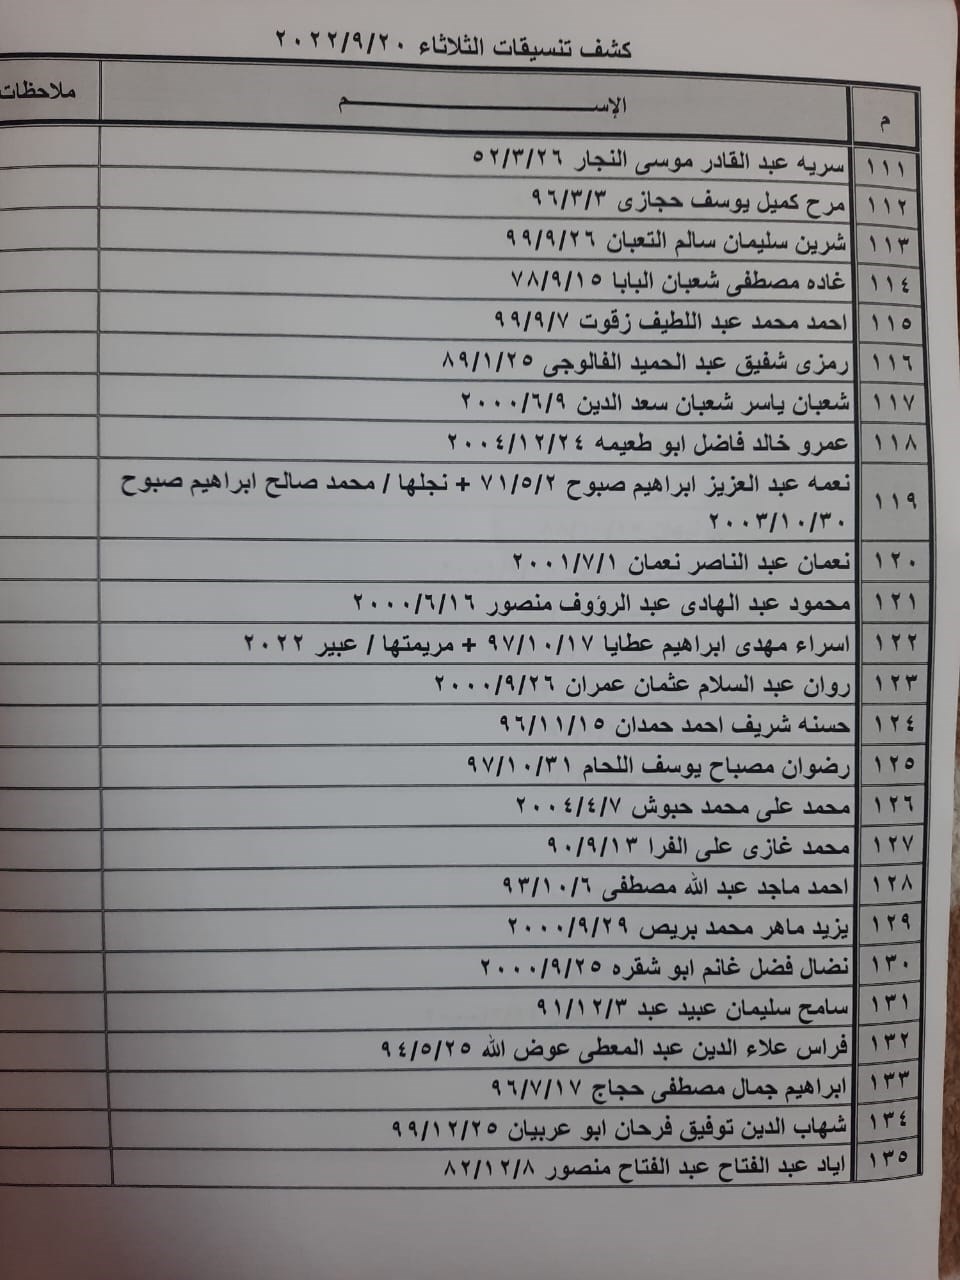 كشف تنسيقات الثلاثاء ٢٠٢٢/٩/٢٠
م الإســــــــم ملاحظات
١١١ سريه عبد القادر موسى النجار ٥٢/٣/٢٦
١١٢ مرح كميل يوسف حجازى ٩٦/٣/٣
١١٣ شرين سليمان سالم التعبان ٩٩/٩/٢٦
١١٤ غاده مصطفى شعبان البابا ٧٨/٩/١٥
١١٥ احمد محمد عبد اللطيف زقوت ٩٩/٩/٧
١١٦ رمزى شفيق عبد الحميد الفالوجى ٨٩/١/٢٥
١١٧ شعبان ياسر شعبان سعد الدين ٢٠٠٠/٦/٩
١١٨ عمرو خالد فاضل ابو طعيمه ٢٠٠٤/١٢/٢٤
١١٩ نعمه عبد العزيز ابراهيم صبوح ٧١/٥/٢ + نجلها / محمد صالح ابراهيم صبوح
٢٠٠٣/١٠/٣٠
١٢٠ نعمان عبد الناصر نعمان ٢٠٠١/٧/١
١٢١ محمود عبد الهادى عبد الرؤوف منصور ٢٠٠٠/٦/١٦
١٢٢ اسراء مهدى ابراهيم عطايا ٩٧/١٠/١٧ + مريمتها / عبير ٢٠٢٢
١٢٣ روان عبد السلام عثمان عمران ٢٠٠٠/٩/٢٦
١٢٤ حسنه شريف احمد حمدان ٩٦/١١/١٥
١٢٥ رضوان مصباح يوسف اللحام ٩٧/١٠/٣١
١٢٦ محمد على محمد حبوش ٢٠٠٤/٤/٧
١٢٧ محمد غازى على الفرا ٩٠/٩/١٣
١٢٨ احمد ماجد عبد الله مصطفى ٩٣/١٠/٦
١٢٩ يزيد ماهر محمد بريص ٢٠٠٠/٩/٢٩
١٣٠ نضال فضل غانم ابو شقره ٢٠٠٠/٩/٢٥
١٣١ سامح سليمان عبيد عبد ٩١/١٢/٣
١٣٢ فراس علاء الدين عبد المعطى عوض الله ٩٤/٥/٢٥
١٣٣ ابراهيم جمال مصطفى حجاج ٩٦/٧/١٧
١٣٤ شهاب الدين توفيق فرحان ابو عربيان ٩٩/١٢/٢٥
١٣٥ اياد عبد الفتاح عبد الفتاح منصور ٨٢/١٢/٨